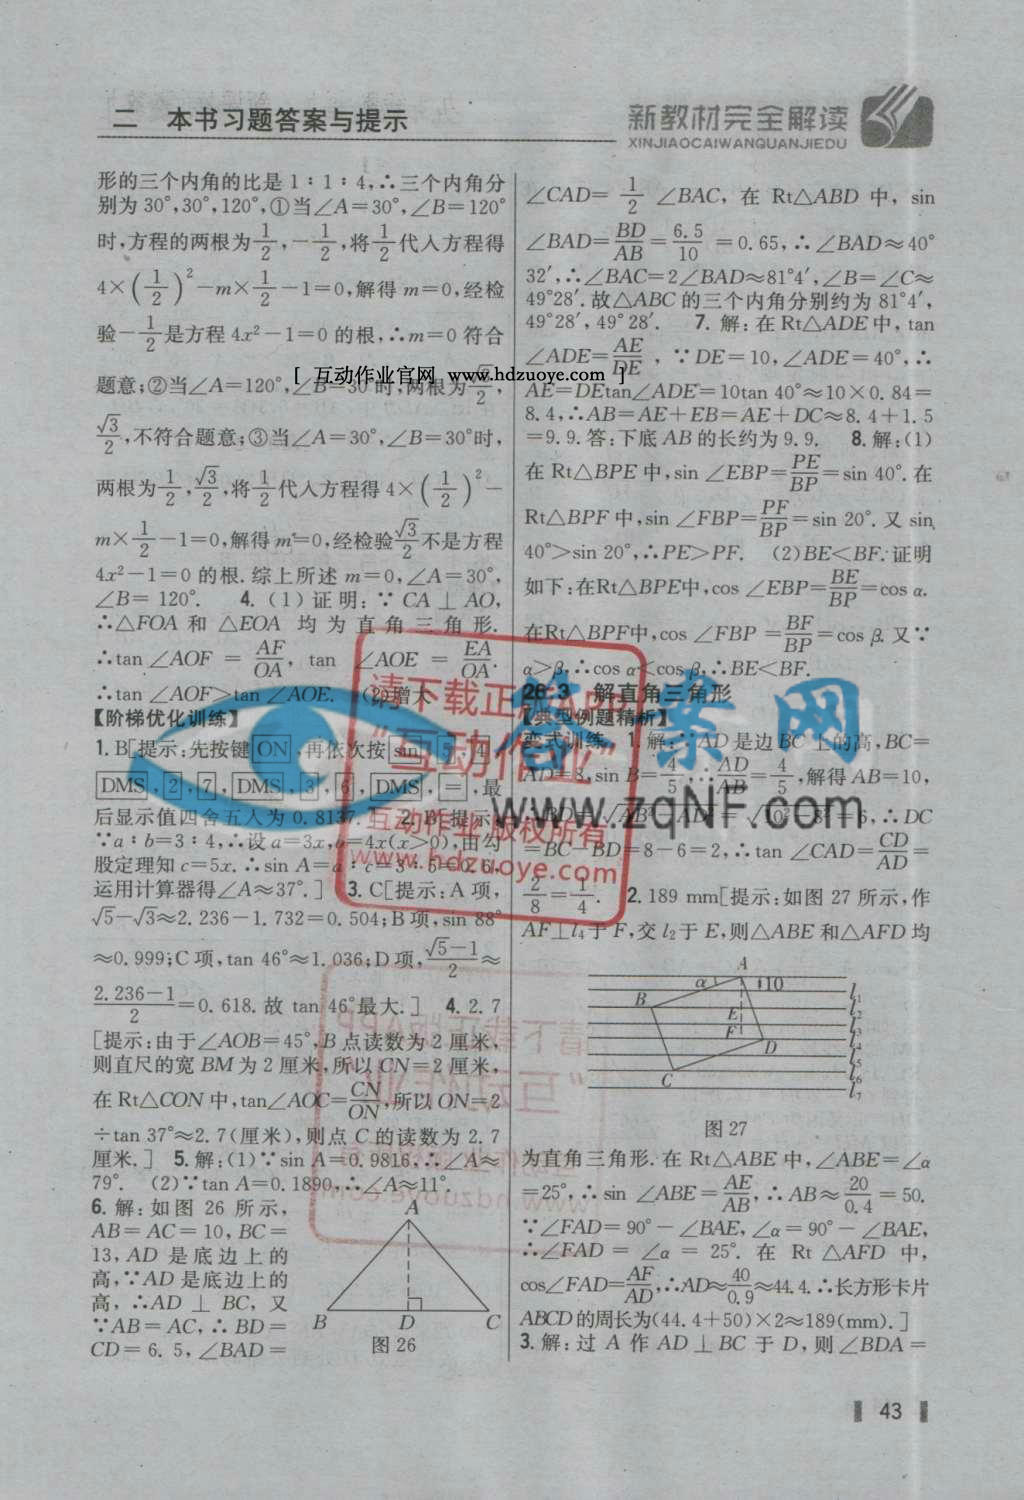 二 本书习题答案与提示
新教材完全解读
XINJIAOCAIWANQUANJIEDU
形的三个内角的比是1∶1∶4,∴三个内角分
别为30°,30°,120°,①当∠A=30°,∠B=120°
时,方程的两根为1/2,-1/2,将1/2代入方程得
4×(1/2)²-m×1/2-1=0,解得m=0,经检
验-1/2是方程4x²-1=0的根,∴m=0符合
题意;②当∠A=120°,∠B=30°时,两根为√3/2,
[ 互动作业官网 www.hdzuoye.com ]
√3/2,不符合题意;③当∠A=30°,∠B=30°时,
两根为1/2,√3/2,将1/2代入方程得4×(1/2)²-
m×1/2-1=0,解得m=0,经检验√3/2不是方程
4x²-1=0的根.综上所述m=0,∠A=30°,
∠B=120°. 4.(1)证明:∵CA⊥AO,
∴△FOA和△EOA均为直角三角形.
∴tan∠AOF=AF/OA,tan∠AOE=EA/OA.
∴tan∠AOF>tan∠AOE. (2)增大
【阶梯优化训练】
1.B[提示:先按键ON,再依次按sin,5,4,
DMS,2,7,DMS,3,6,DMS,=,最
后显示值四舍五入为0.8137.] 2.B[提示:
∵a∶b=3∶4,∴设a=3x,b=4x(x>0),由勾
股定理知c=5x.∴sin A=a∶c=3∶5=0.6,
运用计算器得∠A≈37°.] 3.C[提示:A项,
√5-√3≈2.236-1.732=0.504;B项,sin 88°
≈0.999;C项,tan 46°≈1.036;D项,(√5-1)/2≈
(2.236-1)/2=0.618.故tan 46°最大.] 4.2.7
[提示:由于∠AOB=45°,B点读数为2厘米,
则直尺的宽BM为2厘米,所以CN=2厘米,
在Rt△CON中,tan∠AOC=CN/ON,所以ON=2
÷tan 37°≈2.7(厘米),则点C的读数为2.7
厘米.] 5.解:(1)∵sin A=0.9816,∴∠A≈
79°. (2)∵tan A=0.1890,∴∠A≈11°.
6.解:如图26所示,
AB=AC=10,BC=
13,AD是底边上的
高,∵AD是底边上的
高,∴AD⊥BC,又
∵AB=AC,∴BD=
CD=6.5,∠BAD=
A
B D C
图26
∠CAD=1/2∠BAC,在Rt△ABD中,sin
∠BAD=BD/AB=6.5/10=0.65,∴∠BAD≈40°
32′,∴∠BAC=2∠BAD≈81°4′,∠B=∠C≈
49°28′.故△ABC的三个内角分别约为81°4′,
49°28′,49°28′. 7.解:在Rt△ADE中,tan
∠ADE=AE/DE,∵DE=10,∠ADE=40°,∴
AE=DEtan∠ADE=10tan 40°≈10×0.84=
8.4,∴AB=AE+EB=AE+DC≈8.4+1.5
=9.9.答:下底AB的长约为9.9. 8.解:(1)
在Rt△BPE中,sin∠EBP=PE/BP=sin 40°.在
Rt△BPF中,sin∠FBP=PF/BP=sin 20°.又sin
40°>sin 20°,∴PE>PF. (2)BE<BF.证明
如下:在Rt△BPE中,cos∠EBP=BE/BP=cos α.
在Rt△BPF中,cos∠FBP=BF/BP=cos β.又∵
α>β,∴cos α<cos β,∴BE<BF.
26.3 解直角三角形
【典型例题精析】
变式训练 1.解:∵AD是边BC上的高,BC=
AD=8,sin B=4/5,∴AD/AB=4/5,解得AB=10,
∴BD=√AB²-AD²=√10²-8²=6,∴DC
=BC-BD=8-6=2,∴tan∠CAD=CD/AD=
2/8=1/4. 2.189 mm[提示:如图27所示,作
AF⊥l₄于F,交l₂于E,则△ABE和△AFD均
A α 10
B E F D C
l₁
l₂
l₃
l₄
l₅
l₆
l₇
图27
为直角三角形.在Rt△ABE中,∠ABE=∠α
=25°,∴sin∠ABE=AE/AB,∴AB≈20/0.4=50.
∵∠FAD=90°-∠BAE,∠α=90°-∠BAE,
∴∠FAD=∠α=25°.在Rt△AFD中,
cos∠FAD=AF/AD,∴AD≈40/0.9≈44.4.∴长方形卡片
ABCD的周长为(44.4+50)×2≈189(mm).]
3.解:过A作AD⊥BC于D,则∠BDA=
43
请下载正版APP
“互动作业”
互动作业 版权所有
www.hdzuoye.com
答案网
www.zqNF.com